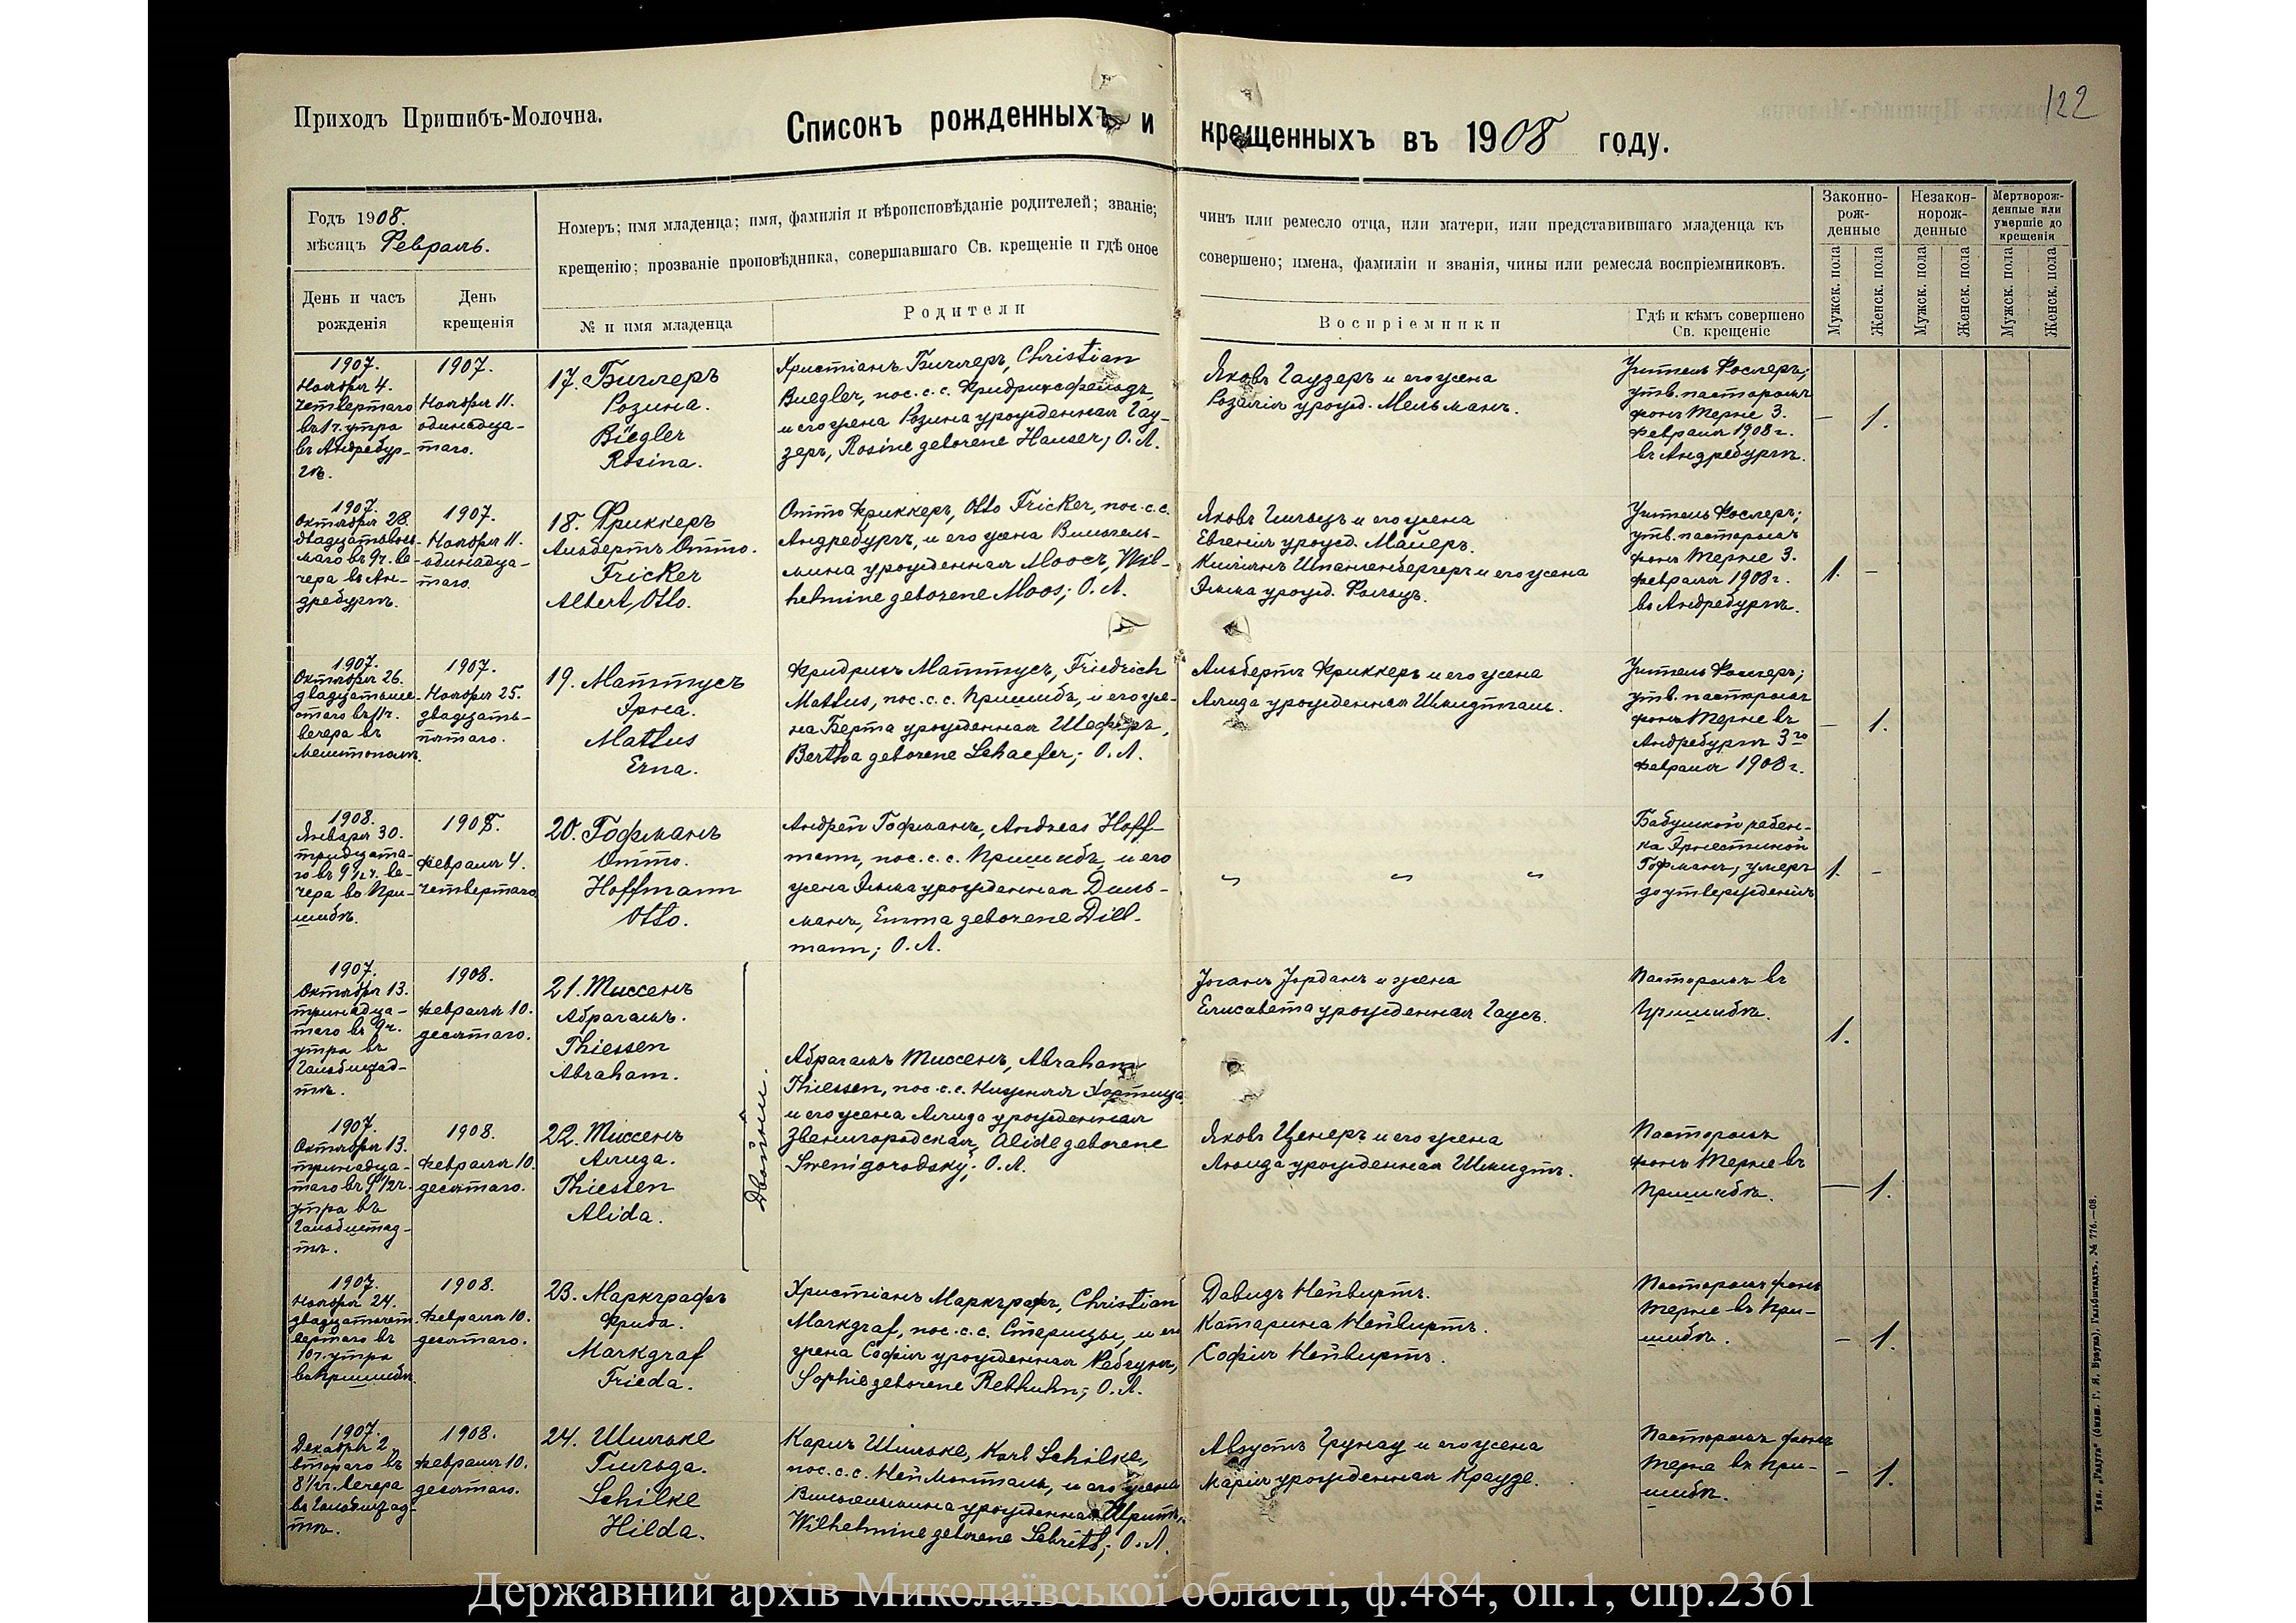 122
Приходъ Пришибъ-Молочна.
Списокъ рожденныхъ и крещенныхъ въ 1908 году.
Годъ 1908.
мѣсяцъ Февраль.
Номеръ; имя младенца; имя, фамилія и вѣроисповѣданіе родителей; званіе;
крещенію; прозваніе проповѣдника, совершавшаго Св. крещеніе и гдѣ оное
чинъ или ремесло отца, или матери, или представившаго младенца къ
совершено; имена, фамиліи и званія, чины или ремесла воспріемниковъ.
Законно-
рож-
денные
Незакон-
норож-
денные
Мертворож-
денные или
умершіе до
крещенія
День и часъ
рожденія
День
крещенія
№ и имя младенца
Родители
Воспріемники
Гдѣ и кѣмъ совершено
Св. крещеніе
Мужск. пола
Женск. пола
Мужск. пола
Женск. пола
Мужск. пола
Женск. пола
1907.
Ноября 4.
четвертаго
въ 1 ч. утра
въ Андребур-
гѣ.
1907.
Ноября 11.
одинадца-
таго.
17. Биглеръ
Розина.
Biegler
Rosina.
Христіанъ Биглеръ, Christian
Buegler, пос. с. с. Фридрихсфельдъ,
и его жена Розина урожденная Гау-
зеръ, Rosine geborene Hauser; О. Л.
Яковъ Гаузеръ и его жена
Розалія урожд. Мельманъ.
Учитель Фослеръ;
утв. пасторомъ
фонъ Терне 3.
Февраля 1908 г.
въ Андребургѣ.
– 1.
1907.
Октября 28.
двадцатьвось-
маго въ 9 ч. ве-
чера въ Ан-
дребургѣ.
1907.
Ноября 11.
одинадца-
таго.
18. Фриккеръ
Альбертъ Отто.
Fricker
Albert, Otto.
Отто Фриккеръ, Otto Fricker, пос. с. с.
Андребургъ, и его жена Вильгель-
мина урожденная Моосъ, Wil-
helmine geborene Moos; О. Л.
Яковъ Гильцъ и его жена
Евгенія урожд. Майеръ.
Киліанъ Шпангенбергеръ и его жена
Эмма урожд. Фольцъ.
Учитель Фослеръ;
утв. пасторомъ
фонъ Терне 3.
февраля 1908 г.
въ Андребургѣ.
1. –
1907.
Октября 26.
двадцатьше-
стаго въ 11 ч.
вечера въ
Мелитополѣ.
1907.
Ноября 25.
двадцать-
пятаго.
19. Маттусъ
Эрна.
Mattus
Erna.
Фридрихъ Маттусъ, Friedrich
Mattus, пос. с. с. Пришибъ, и его же-
на Берта урожденная Шеферъ,
Bertha geborene Schaefer; О. Л.
Альбертъ Фриккеръ и его жена
Алида урожденная Шмидтгаль.
Учитель Фослеръ;
утв. пасторомъ
фонъ Терне въ
Андребургѣ 3го
Февраля 1908 г.
– 1.
1908.
Января 30.
тридцата-
го въ 9 1/2 ч. ве-
чера въ При-
шибѣ.
1908.
Февраля 4.
четвертаго.
20. Гофманъ
Отто.
Hoffmann
Otto.
Андрей Гофманъ, Andreas Hoff-
mann, пос. с. с. Пришибъ, и его
жена Эмма урожденная Диль-
манъ, Emma geborene Dill-
mann; О. Л.
Бабушкой ребен-
ка Эрнестиной
Гофманъ; умеръ
до утвержденія
1. –
1907.
Октября 13.
тринадца-
таго въ 9 ч.
утра въ
Гальбштад-
тѣ.
1908.
Февраля 10.
десятаго.
21. Тиссенъ
Абрагамъ.
Thiessen
Abraham.
Іоганъ Іорданъ и жена
Елисавета урожденная Гаусъ.
Пасторомъ въ
Пришибѣ.
1.
Двойни.
Абрагамъ Тиссенъ, Abraham
Thiessen, пос. с. с. Нижняя Хортица,
и его жена Алида урожденная
Звенигородская, Alide geborene
Swenigorodsky; О. Л.
1907.
Октября 13.
тринадца-
таго въ 9 1/2 ч.
утра въ
Гальбштад-
тѣ.
1908.
Февраля 10.
десятаго.
22. Тиссенъ
Алида.
Thiessen
Alida.
Яковъ Ценеръ и его жена
Алида урожденная Шмидтъ.
Пасторомъ
фонъ Терне въ
Пришибѣ.
– 1.
1907.
Ноября 24.
двадцатьчет-
вертаго въ
10 ч. утра
въ Пришибѣ.
1908.
Февраля 10.
десятаго.
23. Маркграфъ
Фрида.
Markgraf
Frieda.
Христіанъ Маркграфъ, Christian
Markgraf, пос. с. с. Старицы, и его
жена Софія урожденная Ребгунъ,
Sophie geborene Rebhuhn; О. Л.
Давидъ Нейвиртъ.
Катарина Нейвиртъ.
Софія Нейвиртъ.
Пасторомъ фонъ
Терне въ При-
шибѣ.
– 1.
1907.
Декабря 2.
второго въ
8 1/2 ч. вечера
въ Гальбштад-
тѣ.
1908.
Февраля 10.
десятаго.
24. Шильке
Гильда.
Schilke
Hilda.
Карлъ Шильке, Karl Schilke,
пос. с. с. Нейманталь, и его жена
Вильгельмина урожденная
Wilhelmine geborene О. Л.
Августъ Грунау и его жена
Марія урожденная Краузе.
Пасторомъ фонъ
Терне въ При-
шибѣ.
– 1.
Тип. „Радуга“ (бывш. Г. Я. Брауна), Гальбштадтъ. № 776.—08.
Державний архів Миколаївської області, ф.484, оп.1, спр.2361